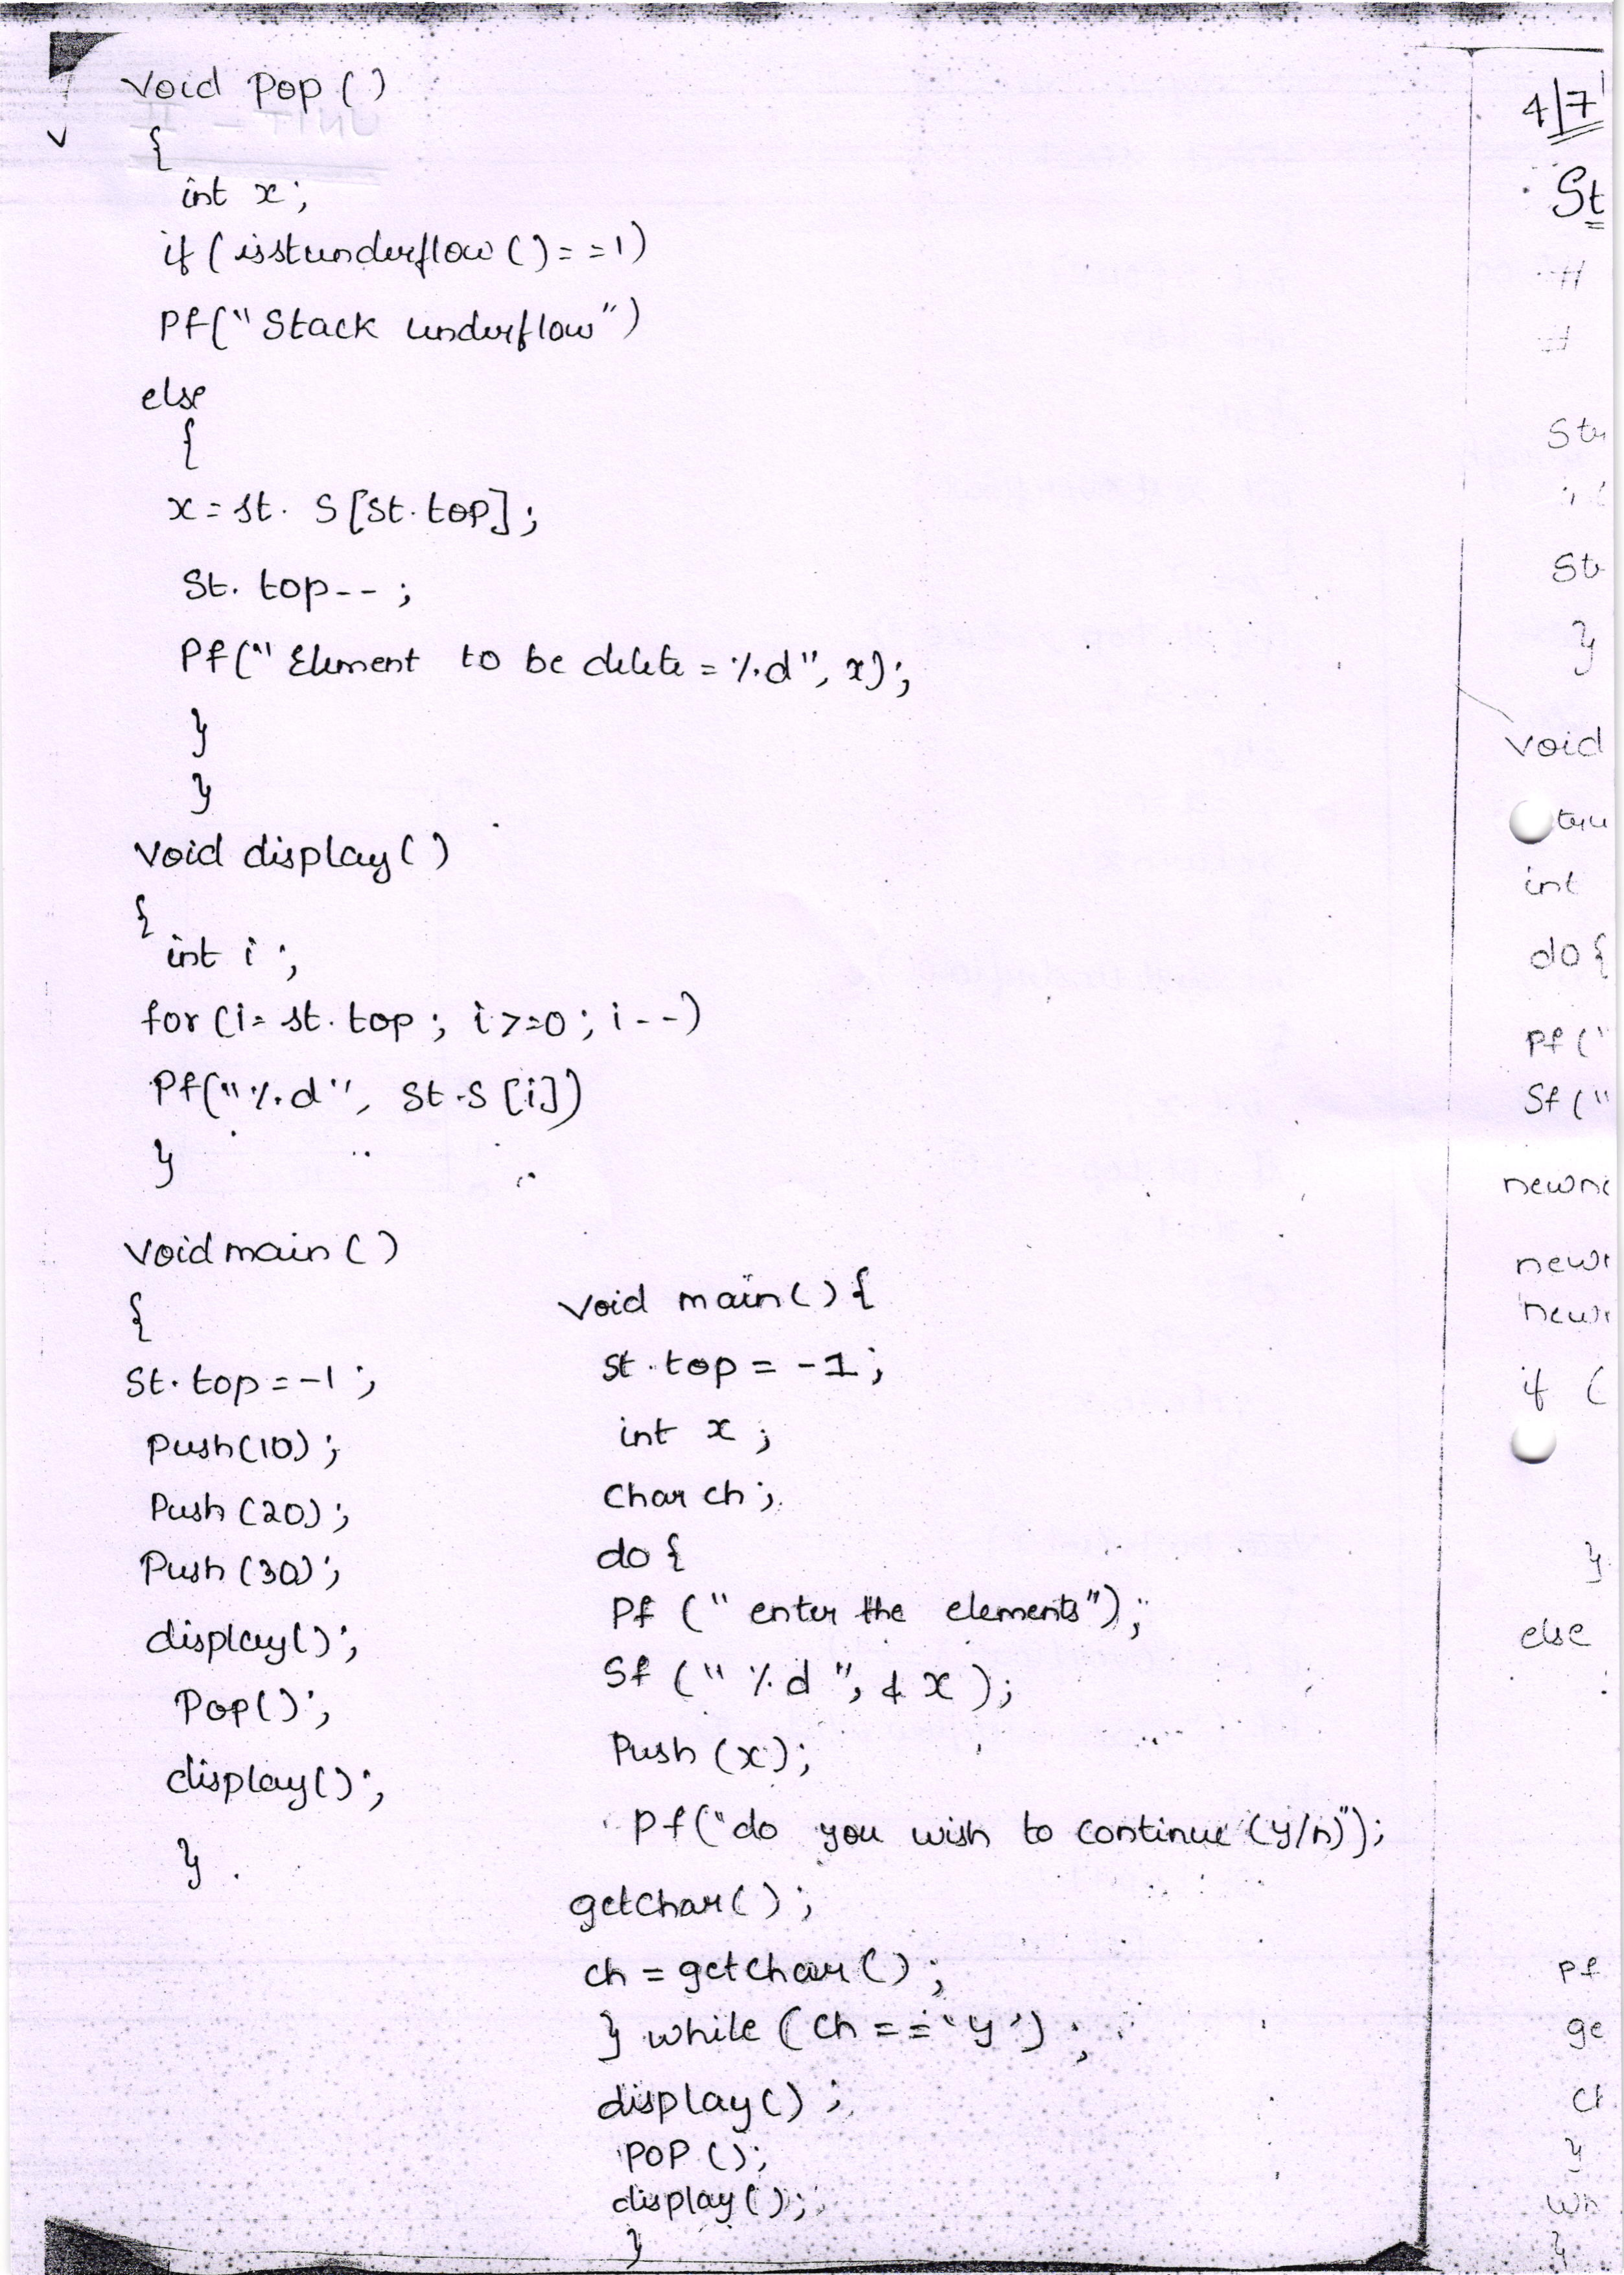 Void Pop ()
{
int x;
if (isstunderflow () = =1)
Pf("Stack underflow")
else
{
x = st. S [St. top];
St. top-- ;
Pf(" Element to be delete = %d", x);
}
}
Void display ()
{
int i ;
for (i= st. top ; i >=0 ; i --)
Pf("%d", St.S [i])
}
Void main ()
{
St. top = -1 ;
Push (10) ;
Push (20) ;
Push (30) ;
display() ;
Pop() ;
display() ;
}
Void main () {
st. top = -1 ;
int x ;
Char ch ;
do {
Pf (" enter the elements") ;
Sf (" %d ", & x ) ;
Push (x) ;
Pf("do you wish to continue (y/n)") ;
getchar() ;
ch = getchar () ;
} while (ch = = 'y') ;
display () ;
POP () ;
display () ;
}
4/7
St
St
}
Void
int
do {
Pf ("
Sf ("
if (
}
else
Pf
ge
}
}